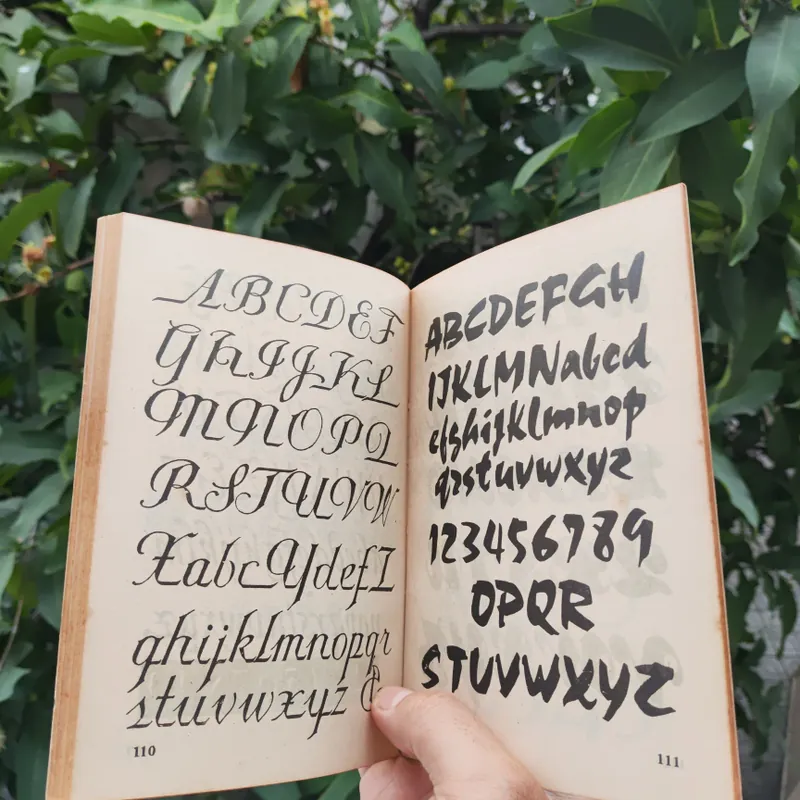 ABCDEF
GHIJKL
MNOPQ
RSTUVW
XabcYdefZ
ghijklmnopqr
stuvwxyz
110
ABCDEFGH
IJKLMNabcd
efghijklmnop
qrstuvwxyz
123456789
OPQR
STUVWXYZ
111